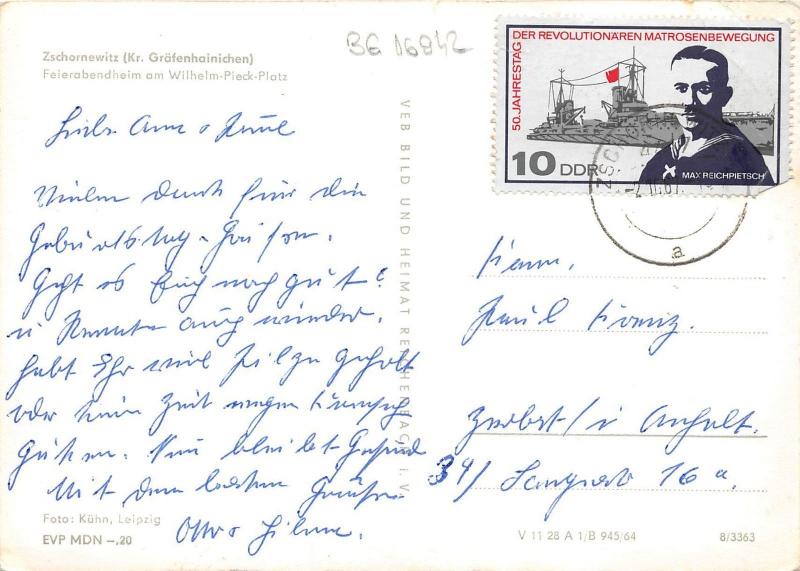 BG 16942
Zschornewitz (Kr. Gräfenhainichen)
Feierabendheim am Wilhelm-Pieck-Platz
50. JAHRESTAG DER REVOLUTIONÄREN MATROSENBEWEGUNG
10 DDR
MAX REICHPIETSCH
-2.11.67
a
VEB BILD UND HEIMAT REICHENBACH i. V.
Vielen Dank für die
Geburtstag
Geht es Euch noch gut?
u auch wieder.
habt Ihr viel Pilze geholt
oder keine Zeit wegen
Nun bleibt Gesund
Mit den besten Grüßen
Otto
Paul
Zerbst / i Anhalt.
34/ 16 a.
Foto: Kühn, Leipzig
EVP MDN -,20
V 11 28 A 1/B 945/64
8/3363